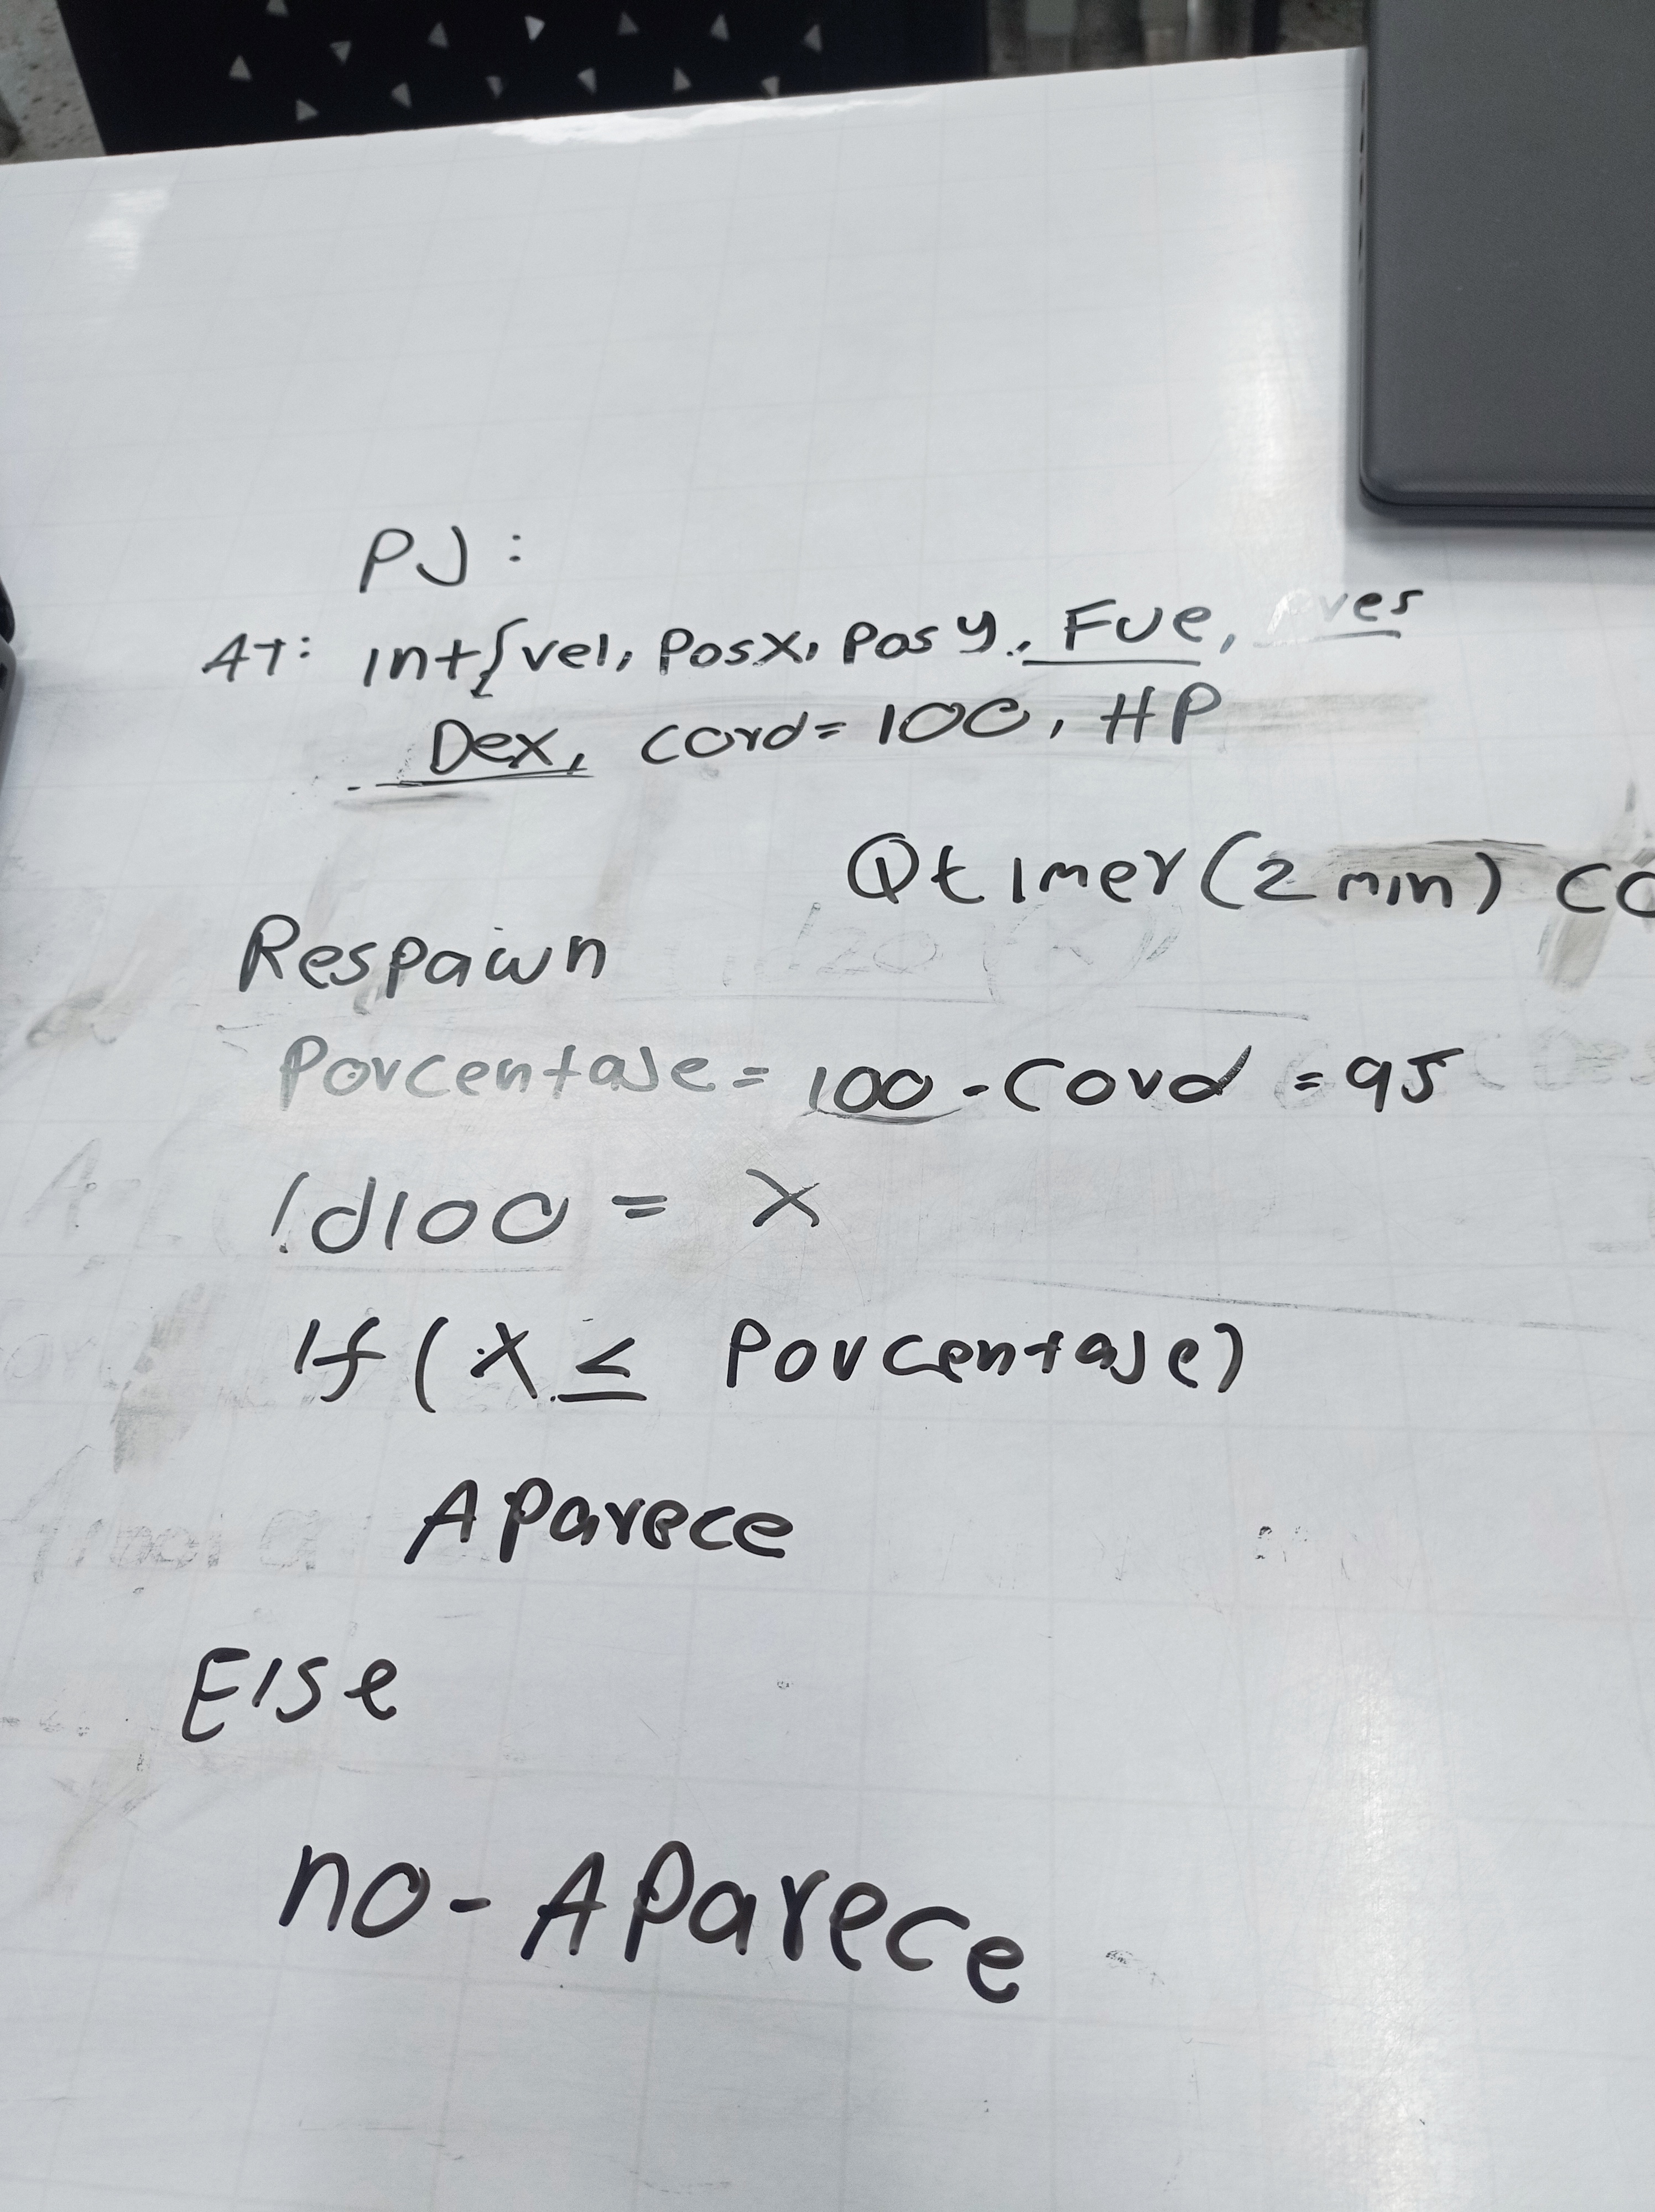 PJ:
AT: int{vel, Posx, Pos y, Fue,
Dex, Cord= 100, HP
Qtimer(2 min)
Respawn
Porcentaje = 100 - Cord = 95
1d100 = X
If ( X ≤ Porcentaje)
Aparece
Else
no-Aparece